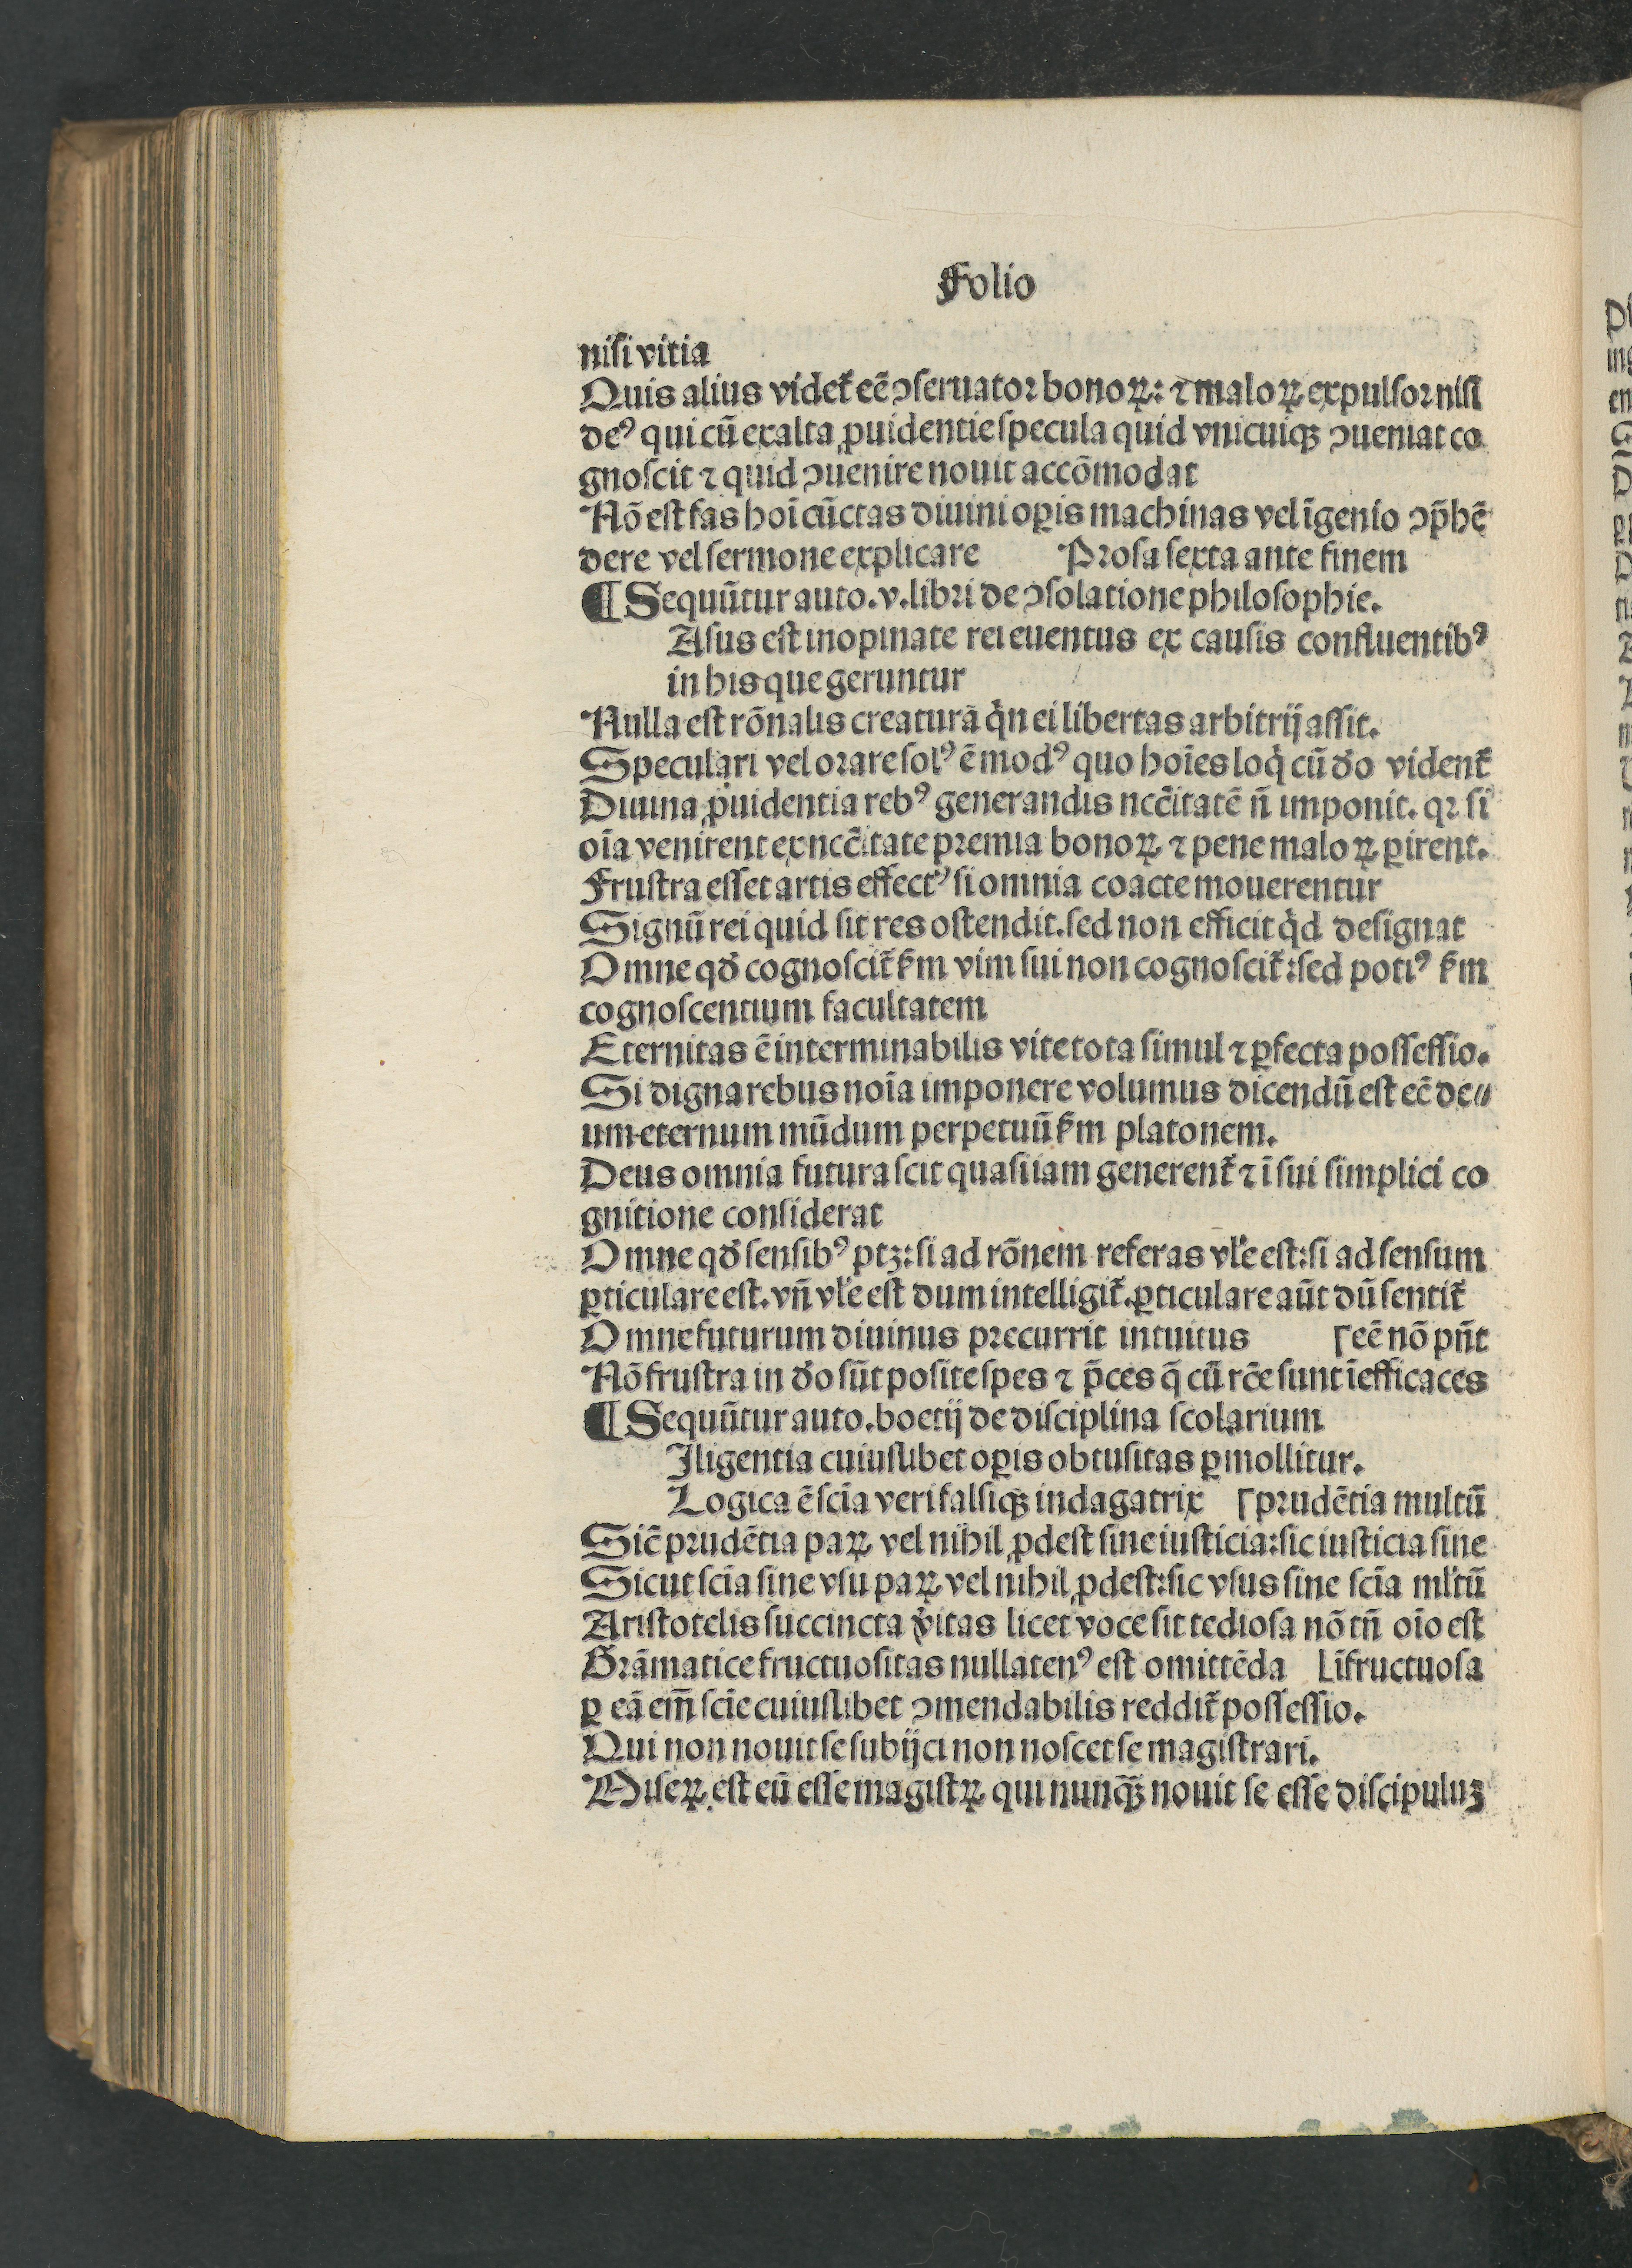 Folio
nisi vitia
Quis alius videt᷑ eē ↄseruator bonoꝝ: ⁊ maloꝝ expulsor nisi
deꝰ qui cū ex alta ꝓuidentie specula quid vnicuiqꝫ ↄueniat co
gnoscit ⁊ quid ↄuenire nouit accōmodat
Nō est fas hoī cūctas diuini oꝑis machinas vel īgenio ↄp̄hē
dere vel sermone explicare Prosa sexta ante finem
¶ Sequūtur auto. v. libri de ↄsolatione philosophie.
Asus est inopinate rei euentus ex causis confluentibꝰ
in his que geruntur
Nulla est rōnalis creaturā qͥn ei libertas arbitrij assit.
Speculari vel orare solꝰ ē modꝰ quo hoīes loqͥ cū ꝺo vident᷑
Diuina ꝓuidentia rebꝰ generandis nccītatē n̄ imponit. qꝛ si
oīa venirent ex nccītate premia bonoꝝ ⁊ pene maloꝝ ꝑirent.
Frustra esset artis effectꝰ si omnia coacte mouerentur
Signū rei quid sit res ostendit. sed non efficit qͥd designat
Omne qꝺ cognoscit᷑ ẜm vim sui non cognoscit᷑: sed potiꝰ ẜm
cognoscentium facultatem
Eternitas ē interminabilis vite tota simul ⁊ ꝑfecta possessio.
Si digna rebus noīa imponere volumus dicendū est eē de⸗
um eternum mūdum perpetuū ẜm platonem.
Deus omnia futura scit quasi iam generent᷑ ⁊ ī sui simplici co
gnitione considerat
Omne qꝺ sensibꝰ ptꝫ: si ad rōnem referas vl̓e est: si ad sensum
ꝑticulare est. vn̄ vl̓e est dum intelligit᷑. ꝑticulare aūt dū sentit᷑
Omne futurum diuinus precurrit intuitus ⌈eē nō pn̄t
Nō frustra in ꝺo sūt posite spes ⁊ p̄ces q̄ cū rc̄e sunt īefficaces
¶ Sequūtur auto. boetij de disciplina scolarium
Iligentia cuiuslibet oꝑis obtusitas ꝑmollitur.
Logica ē scīa veri falsiqꝫ indagatrix ⌈prudētia multū
Sic̄ prudētia paꝝ vel nihil ꝓdest sine iusticia: sic iusticia sine
Sicut scīa sine vsu paꝝ vel nihil ꝓdest: sic vsus sine scīa ml̓tū
Aristotelis succincta v̓itas licet voce sit tediosa nō tn̄ oīo est
Grāmatice fructuositas nullatenꝰ est omittēda ⌊īfructuosa
ꝑ eā em̄ scīe cuiuslibet ↄmendabilis reddit᷑ possessio.
Qui non nouit se subijci non noscet se magistrari.
Miseꝝ est eū esse magistꝝ qui nunqꝫ̄ nouit se esse discipuluꝫ